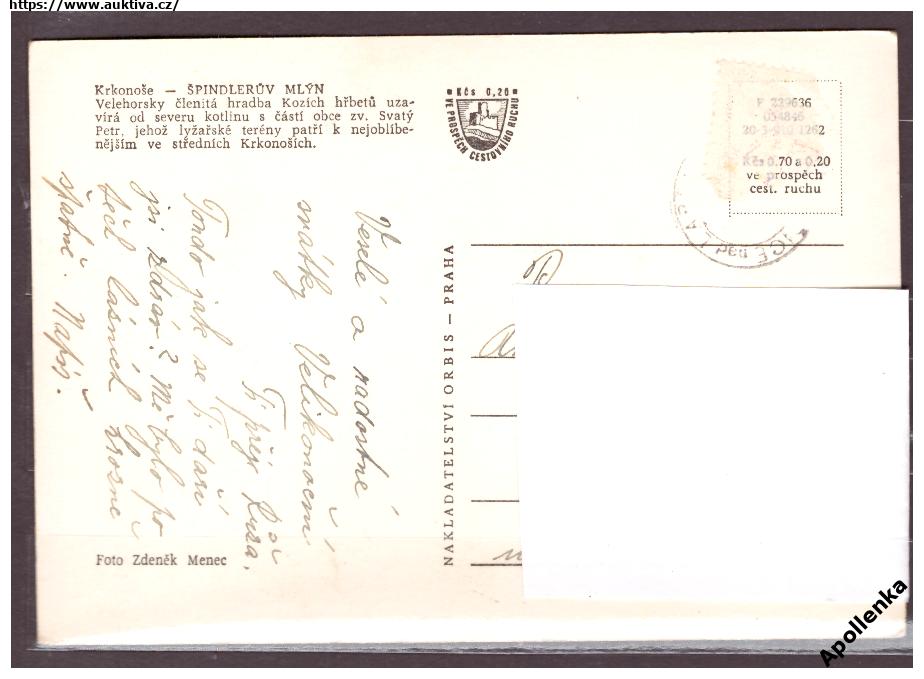 https://www.auktiva.cz/
Krkonoše — ŠPINDLERŮV MLÝN
Velehorsky členitá hradba Kozích hřbetů uza-
vírá od severu kotlinu s částí obce zv. Svatý
Petr, jehož lyžařské terény patří k nejoblíbe-
nějším ve středních Krkonoších.
Kčs 0,20
VE PROSPĚCH CESTOVNÍHO RUCHU
F 229636
034846
Kčs 0.70 a 0,20
ve prospěch
cest. ruchu
nad
Veselé a radostné
svátky Velikonoční
Ti přeje
Tondo jak se Ti daří
jsi zdráv? Mě bylo po
těch lázních hrosně
špatně. Napiš.
NAKLADATELSTVÍ ORBIS — PRAHA
Foto Zdeněk Menec
Apollenka